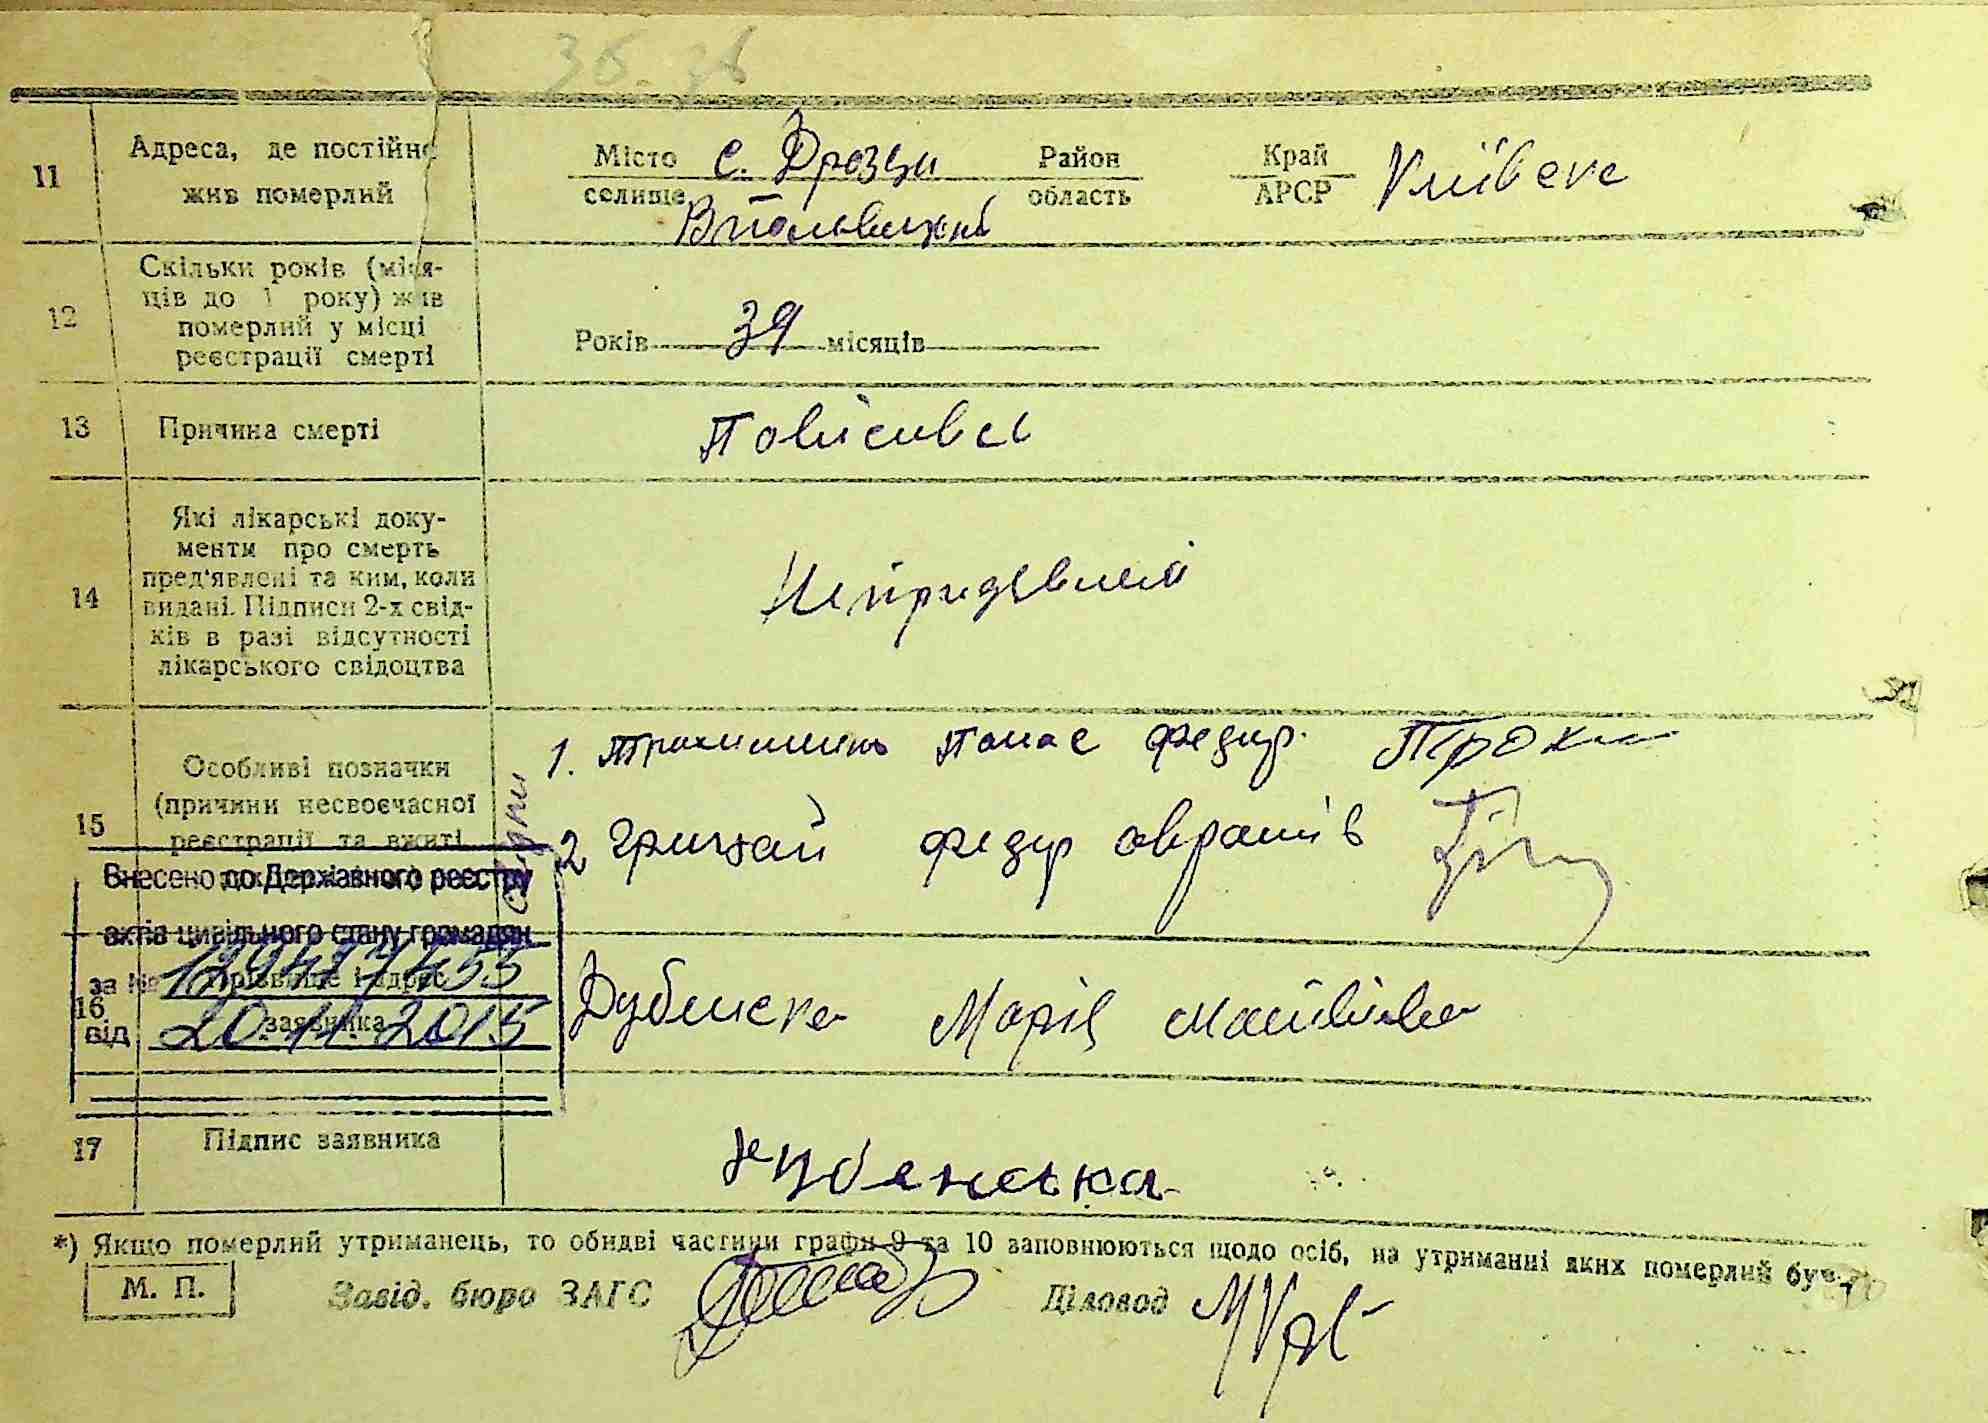 36.36
11 Адреса, де постійно жив померлий
Місто селище с. Дрозди Район область Край АРСР Київська
12 Скільки років (міся-
ців до 1 року) жив
померлий у місці
реєстрації смерті
Років 39 місяців
13 Причина смерті Повісився
14 Які лікарські доку-
менти про смерть
пред'явлені та ким, коли
видані. Підписи 2-х свід-
ків в разі відсутності
лікарського свідоцтва
15 Особливі позначки
(причини несвоєчасної
реєстрації та вжиті
1. Панас Федир.
2 Грицай Федир
Внесено до Державного реєстру
актів цивільного стану громадян
за № 12947455
від 20.11.2015
16 Прізвище і адрес
заявника
Марія Матвіївна
17 Підпис заявника Дубенська
*) Якщо померлий утриманець, то обидві частини графи 9 та 10 заповнюються щодо осіб, на утриманні яких померлий був.
М. П. Завід. бюро ЗАГС Діловод